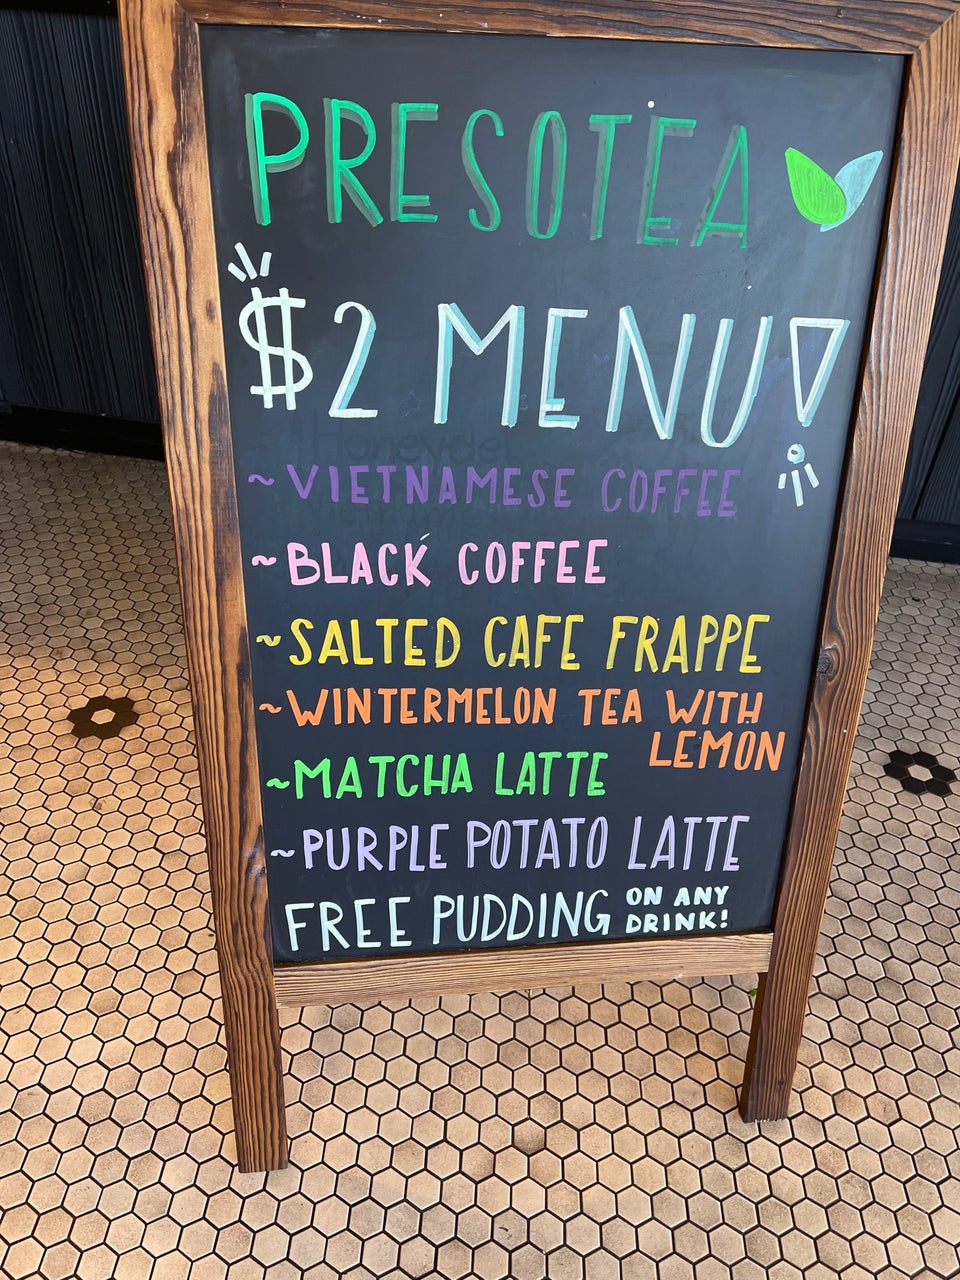 PRESOTEA
$2 MENU!
~VIETNAMESE COFFEE
~BLACK COFFEE
~SALTED CAFE FRAPPE
~WINTERMELON TEA WITH
LEMON
~MATCHA LATTE
~PURPLE POTATO LATTE
FREE PUDDING ON ANY
DRINK!